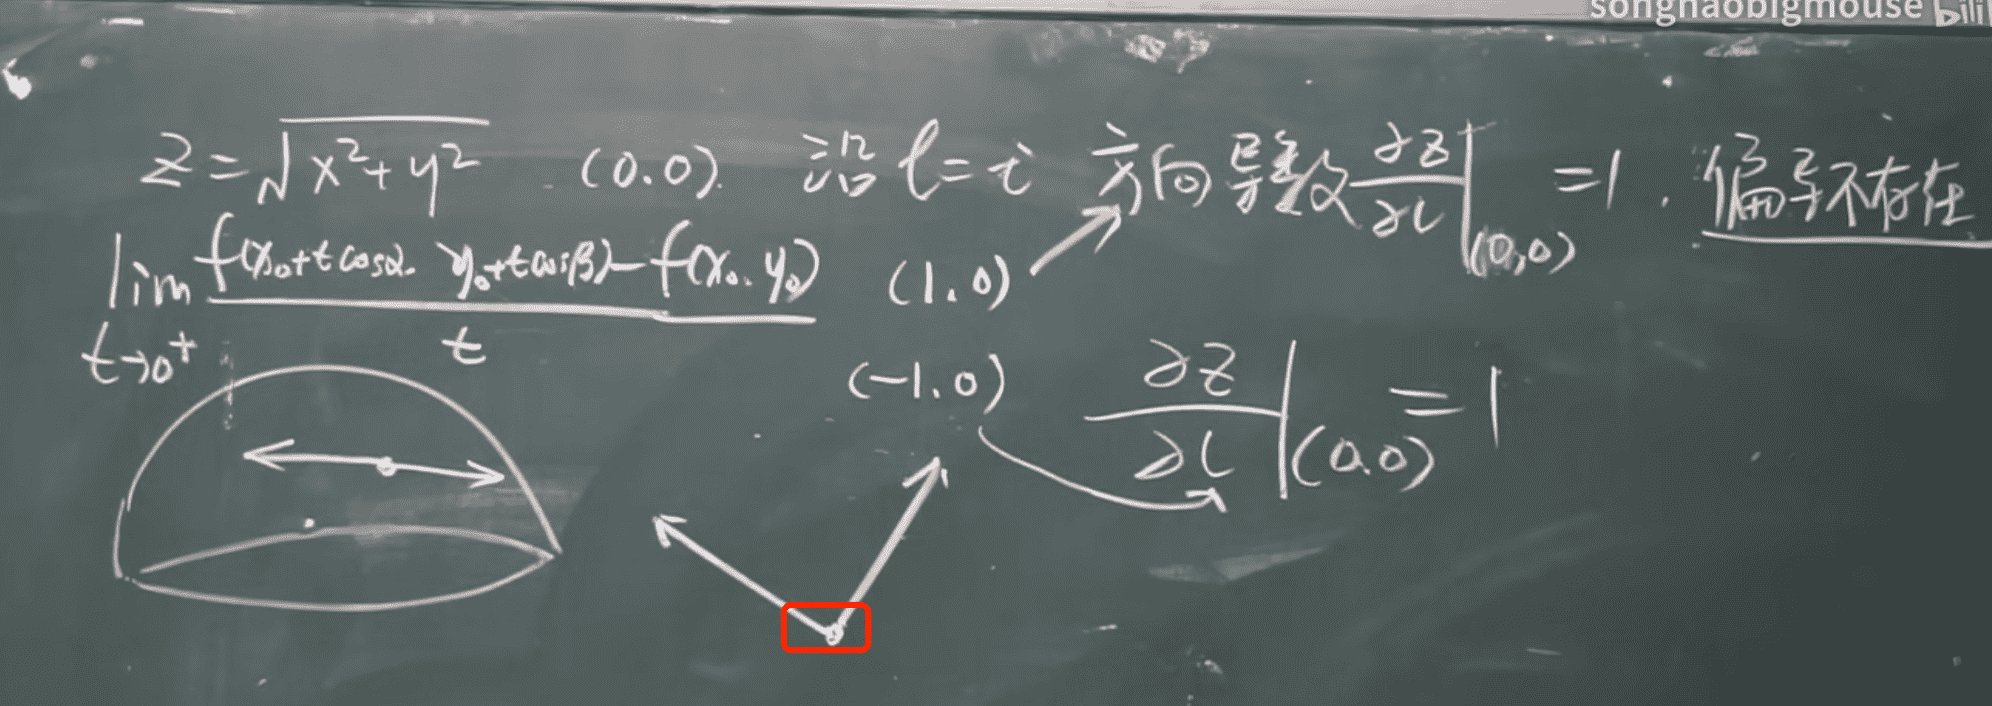 songhaobigmouse bili
z=√x²+y² (0.0). 沿 l=i 方向导数 ∂z/∂l|(0,0) =1. 偏导不存在
lim t→0⁺ f(x₀+tcosα. y₀+tcosβ)-f(x₀.y₀)/t (1.0)
(-1.0) ∂z/∂l|(0.0) =1